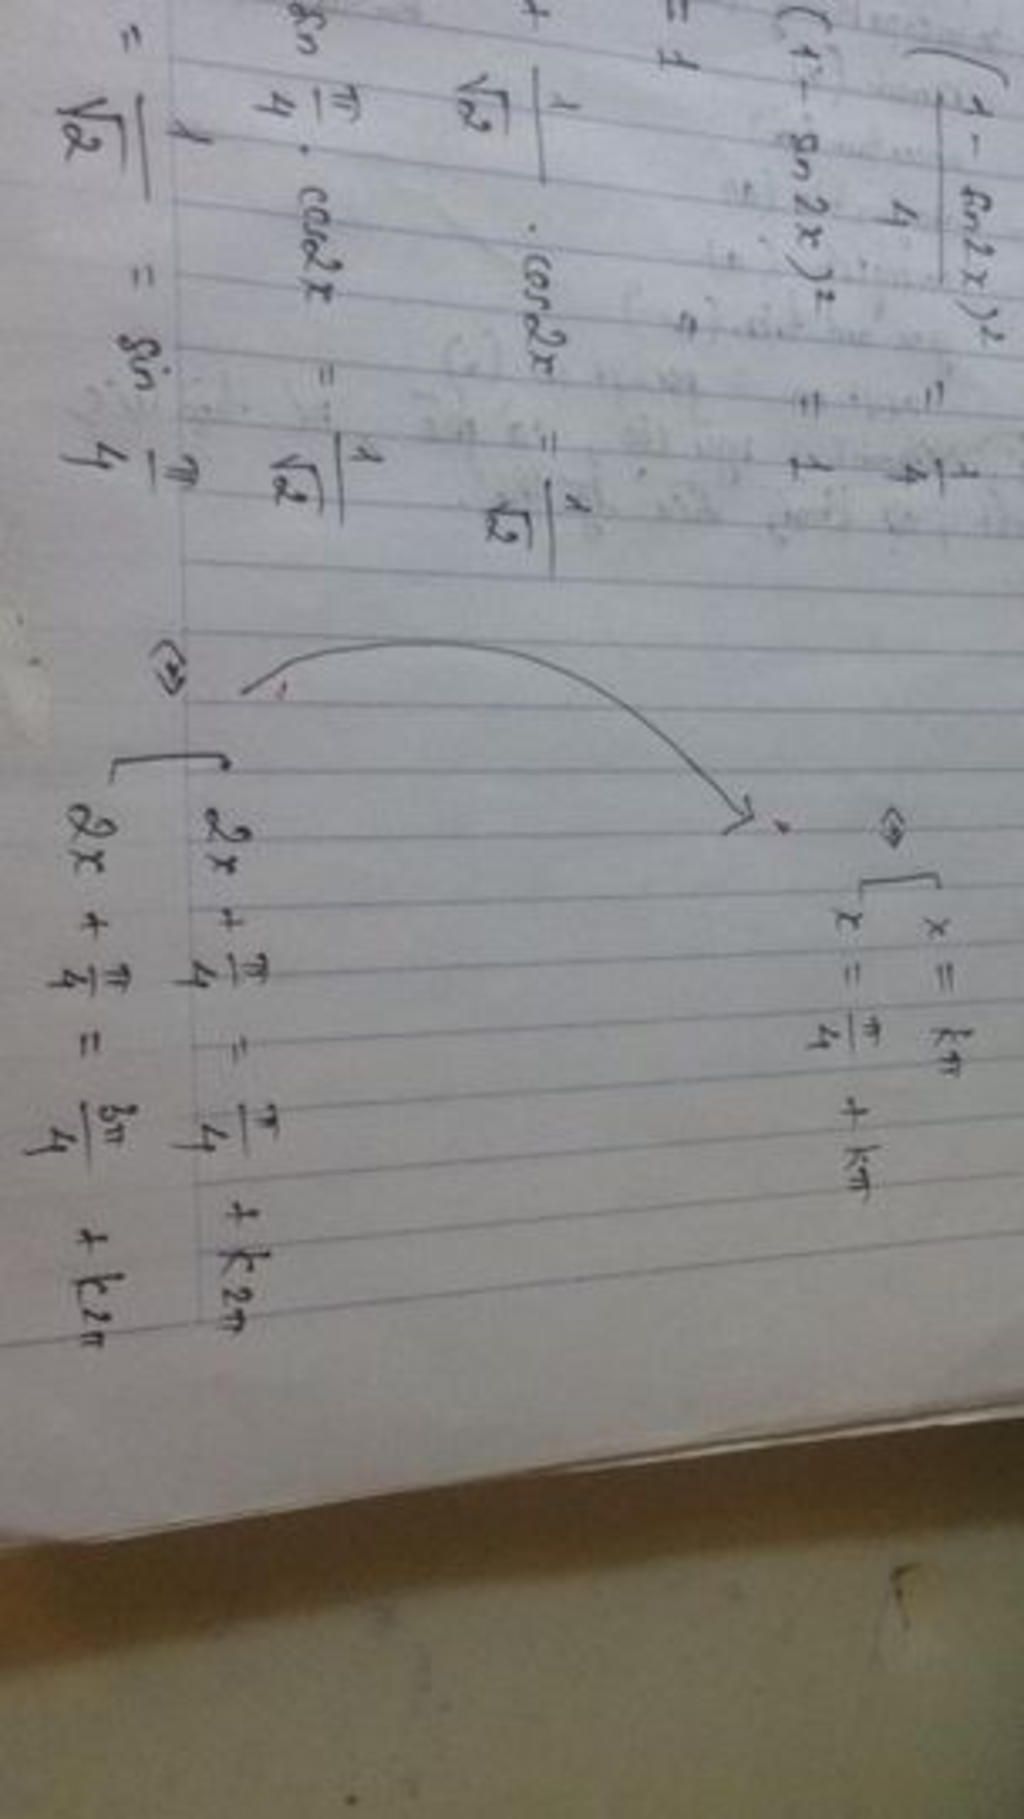 (1 - sin2x / 4)² = 1/4
(1 - sin2x)² = 1
= 1
+ 1/√2 . cos2x = 1/√2
sin π/4 . cos2x = 1/√2
= 1/√2 = sin π/4
⇔ [ x = kπ
x = π/4 + kπ
⇔ [ 2x + π/4 = π/4 + k2π
2x + π/4 = 3π/4 + k2π